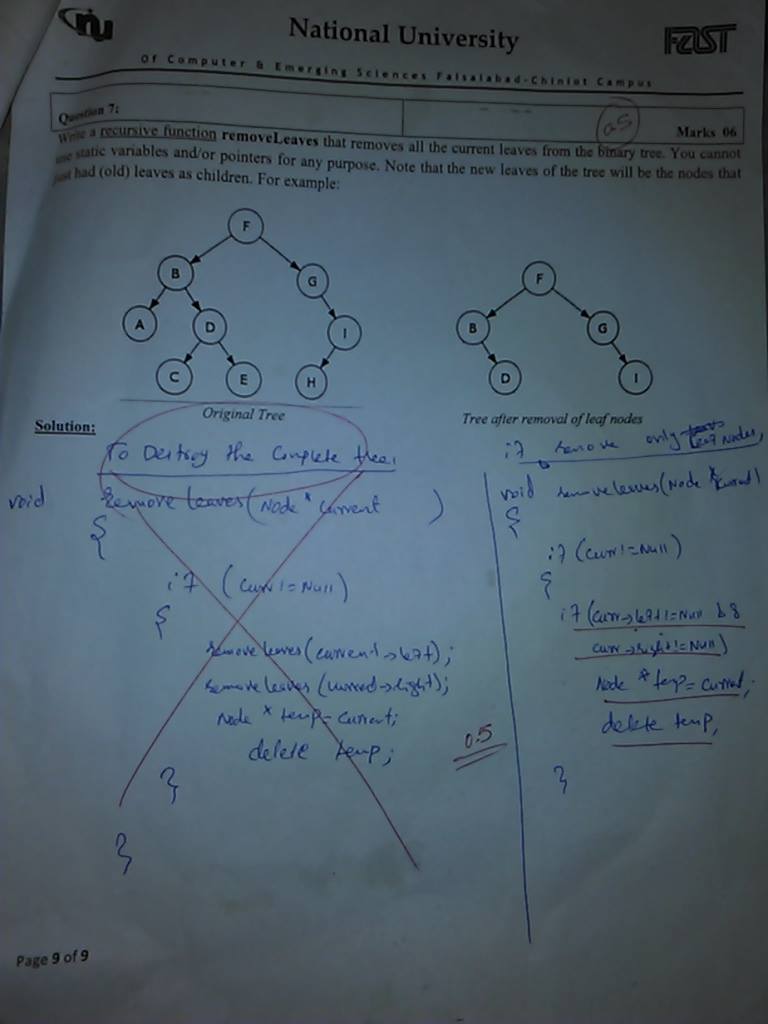 nu
National University
FAST
Of Computer & Emerging Sciences Faisalabad-Chiniot Campus
Question 7:
0.5
Marks 06
Write a recursive function removeLeaves that removes all the current leaves from the binary tree. You cannot
use static variables and/or pointers for any purpose. Note that the new leaves of the tree will be the nodes that
just had (old) leaves as children. For example:
F
B
G
A
D
I
C
E
H
Original Tree
F
B
G
D
I
Tree after removal of leaf nodes
Solution:
To Destroy the Complete tree,
void Remove leaves(Node * current )
{
if (curr != Null)
{
remove leaves(current->left);
remove leaves (current->right);
Node * temp = current;
delete temp;
}
}
0.5
if remove only leaf Nodes,
void remove leaves(Node * current)
{
if (curr != Null)
{
if (curr->left != Null &&
curr->right != Null)
Node * temp = current;
delete temp,
}
Page 9 of 9